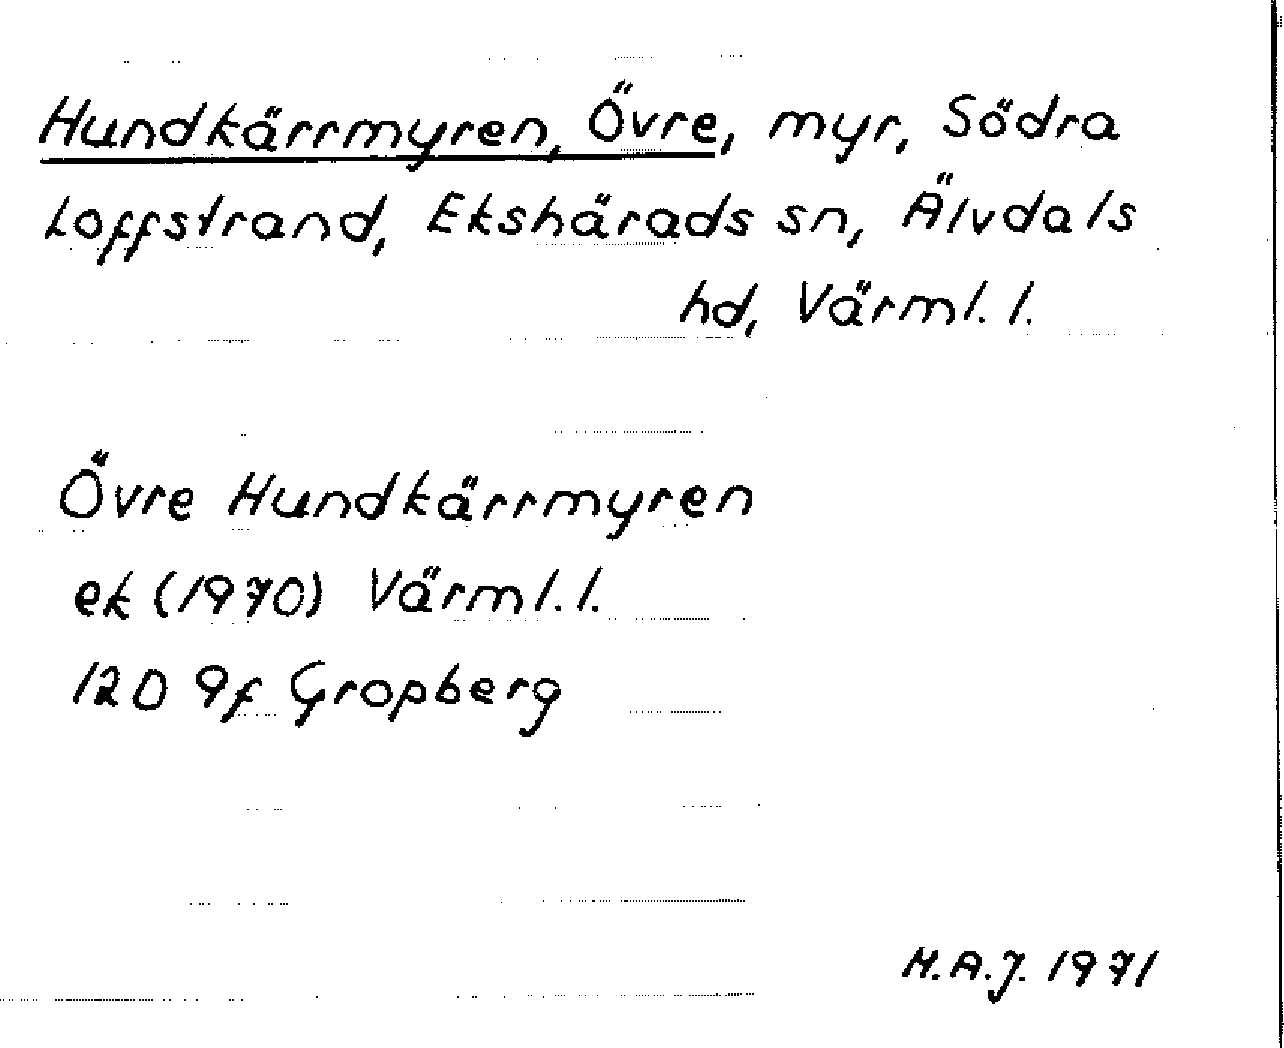 Hundkärrmyren, Övre, myr, Södra
Loffstrand, Ekshärads sn, Älvdals
hd, Värml. l.
Övre Hundkärrmyren
ek (1970) Värml. l.
12D 9f Gropberg
M.A.J. 1971